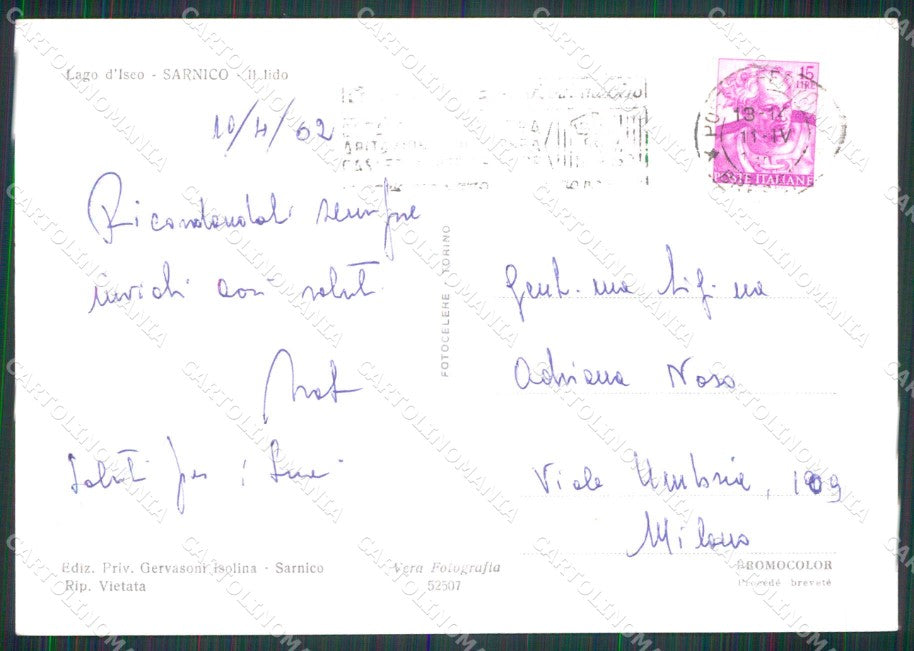 Lago d'Iseo - SARNICO - Il lido
10/4/62
Ricordandoti sempre
invioti cari saluti
Saluti per i
15
LIRE
POSTE ITALIANE
11-IV
FOTOCELERE - TORINO
Gent.ma Sig.na
Adriana
Viale Umbria, 109
Milano
Ediz. Priv. Gervasoni Isolina - Sarnico
Rip. Vietata
Vera Fotografia
52507
BROMOCOLOR
Procédé breveté
CARTOLINOMANIA